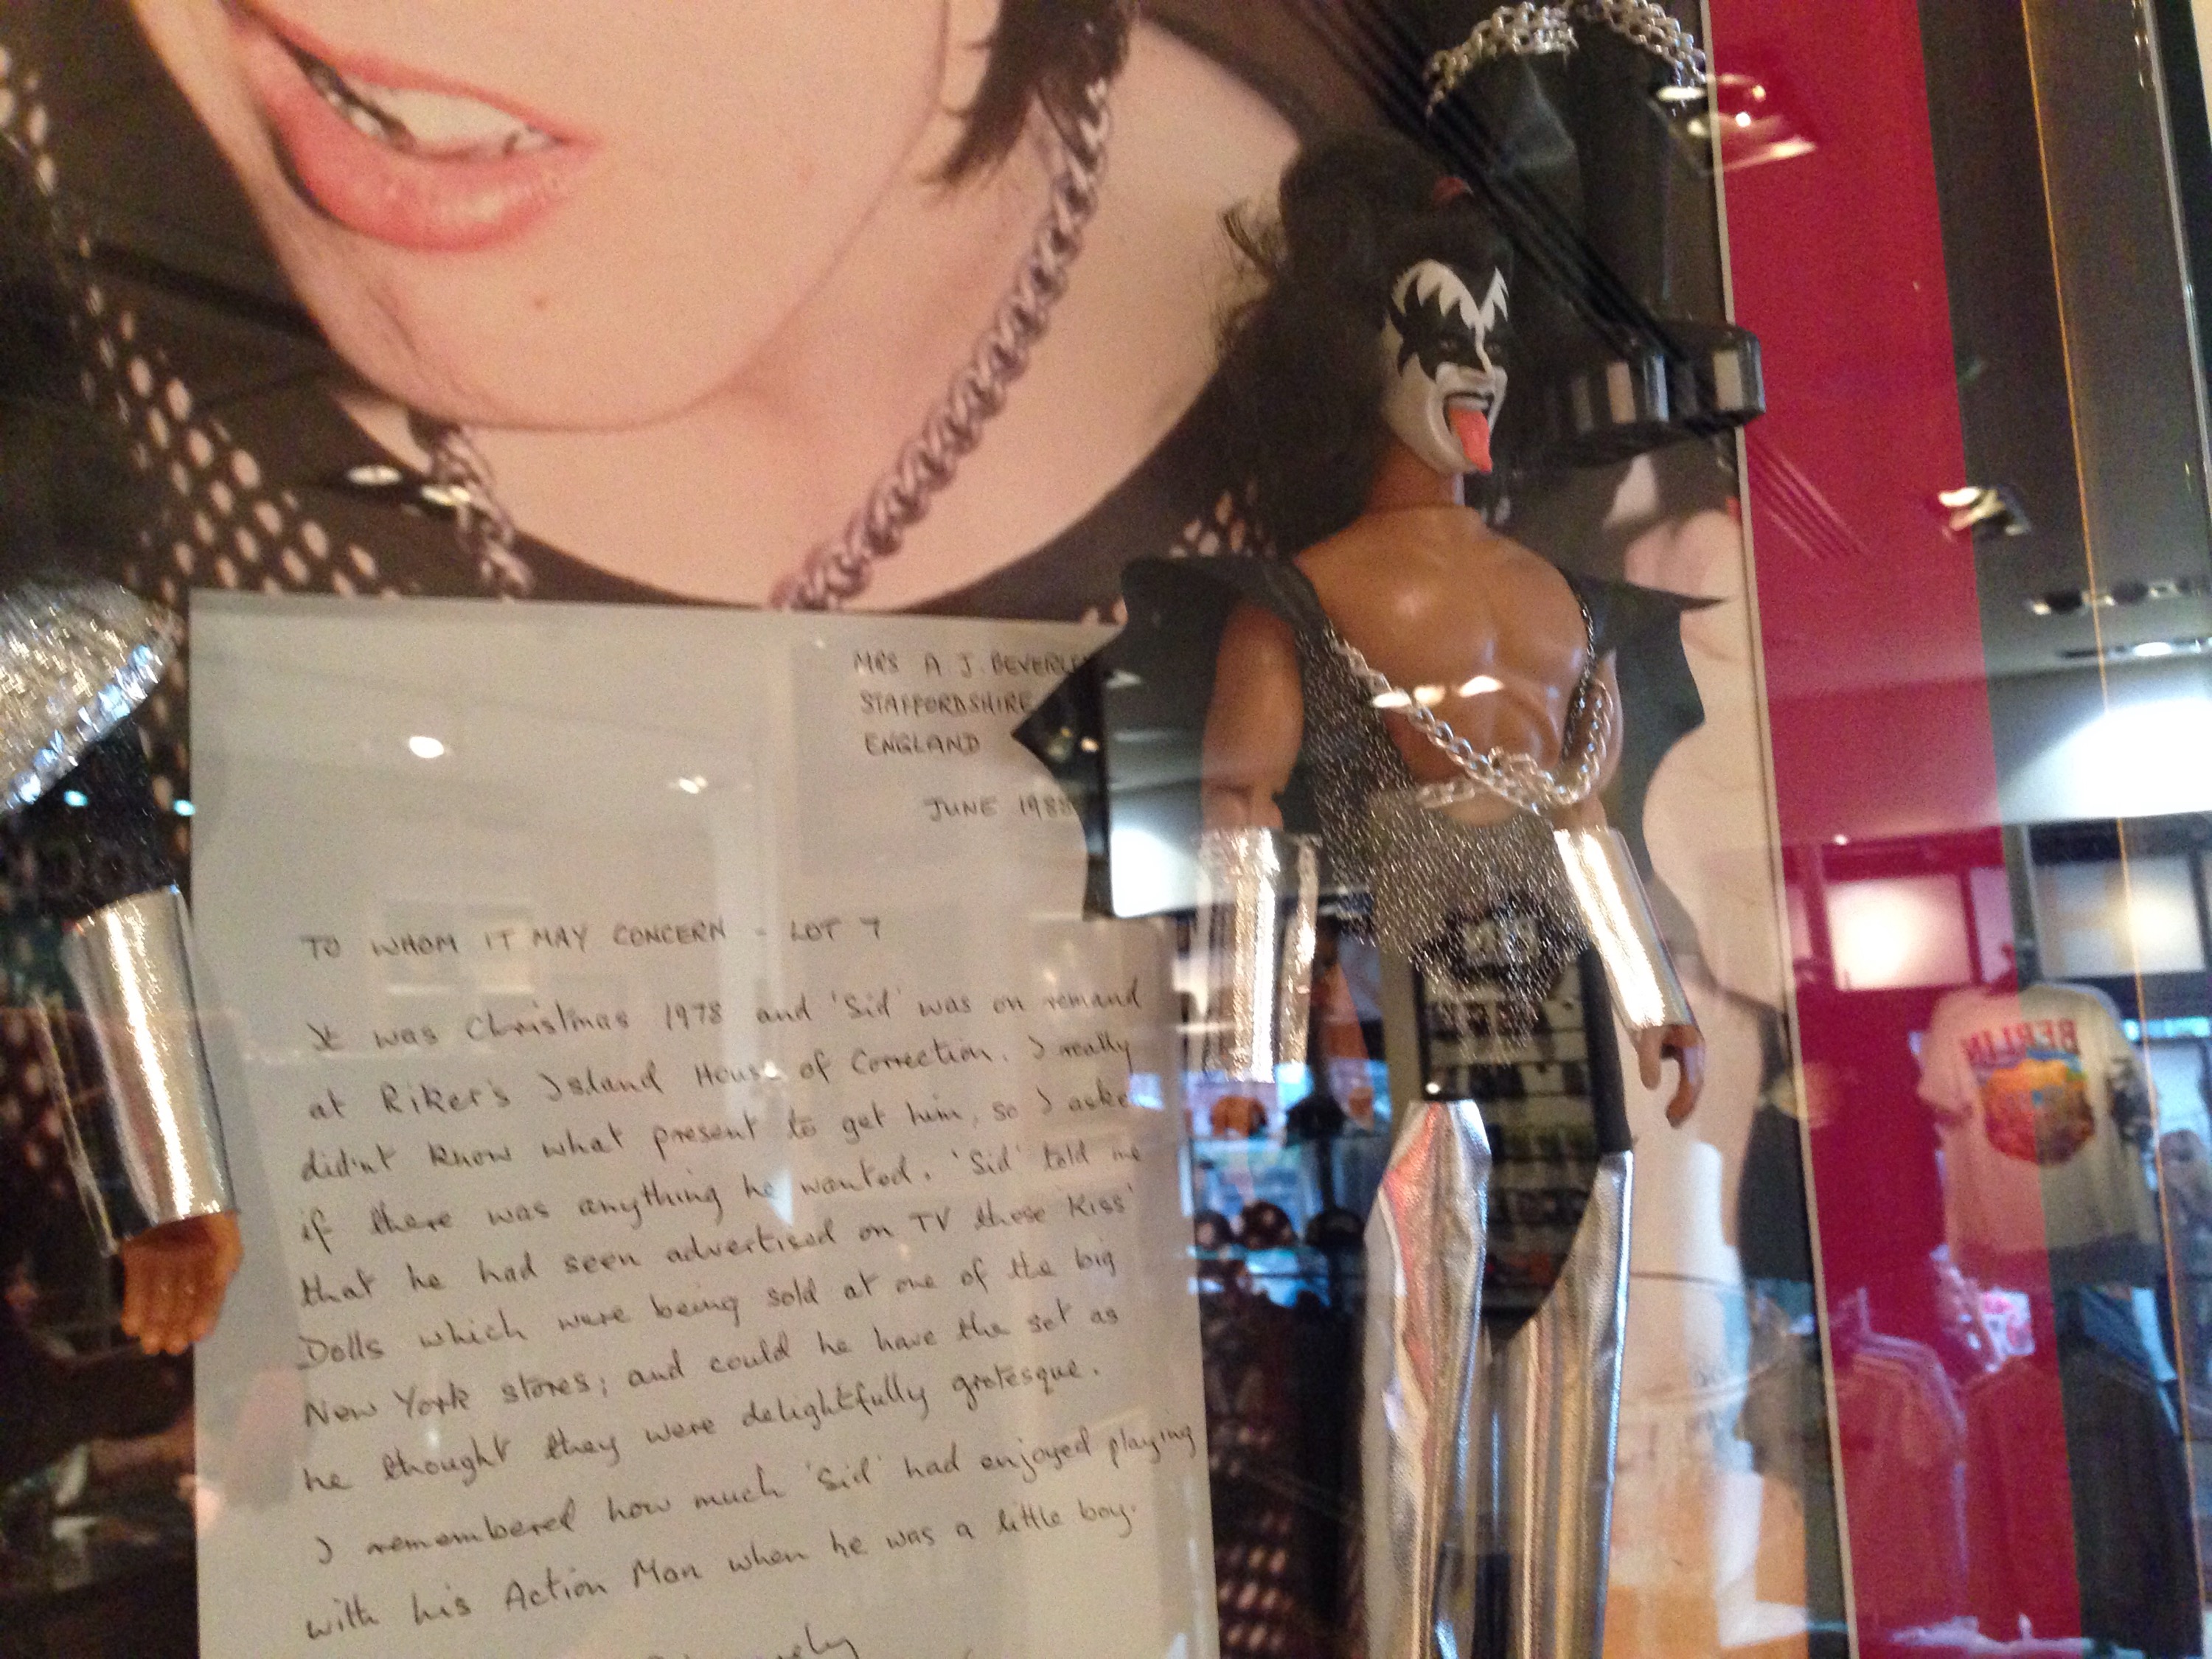 MRS A J. BEVERLEY
STAFFORDSHIRE
ENGLAND
JUNE 1988
TO WHOM IT MAY CONCERN - LOT 7
It was Christmas 1978 and 'Sid' was on remand
at Riker's Island House of Correction. I really
didn't know what present to get him, so I aske
if there was anything he wanted. 'Sid' told me
that he had seen advertised on TV these 'Kiss'
Dolls which were being sold at one of the big
New York stores; and could he have the set as
he thought they were delightfully grotesque.
I remembered how much 'Sid' had enjoyed playing
with his Action Man when he was a little boy.
BERLIN